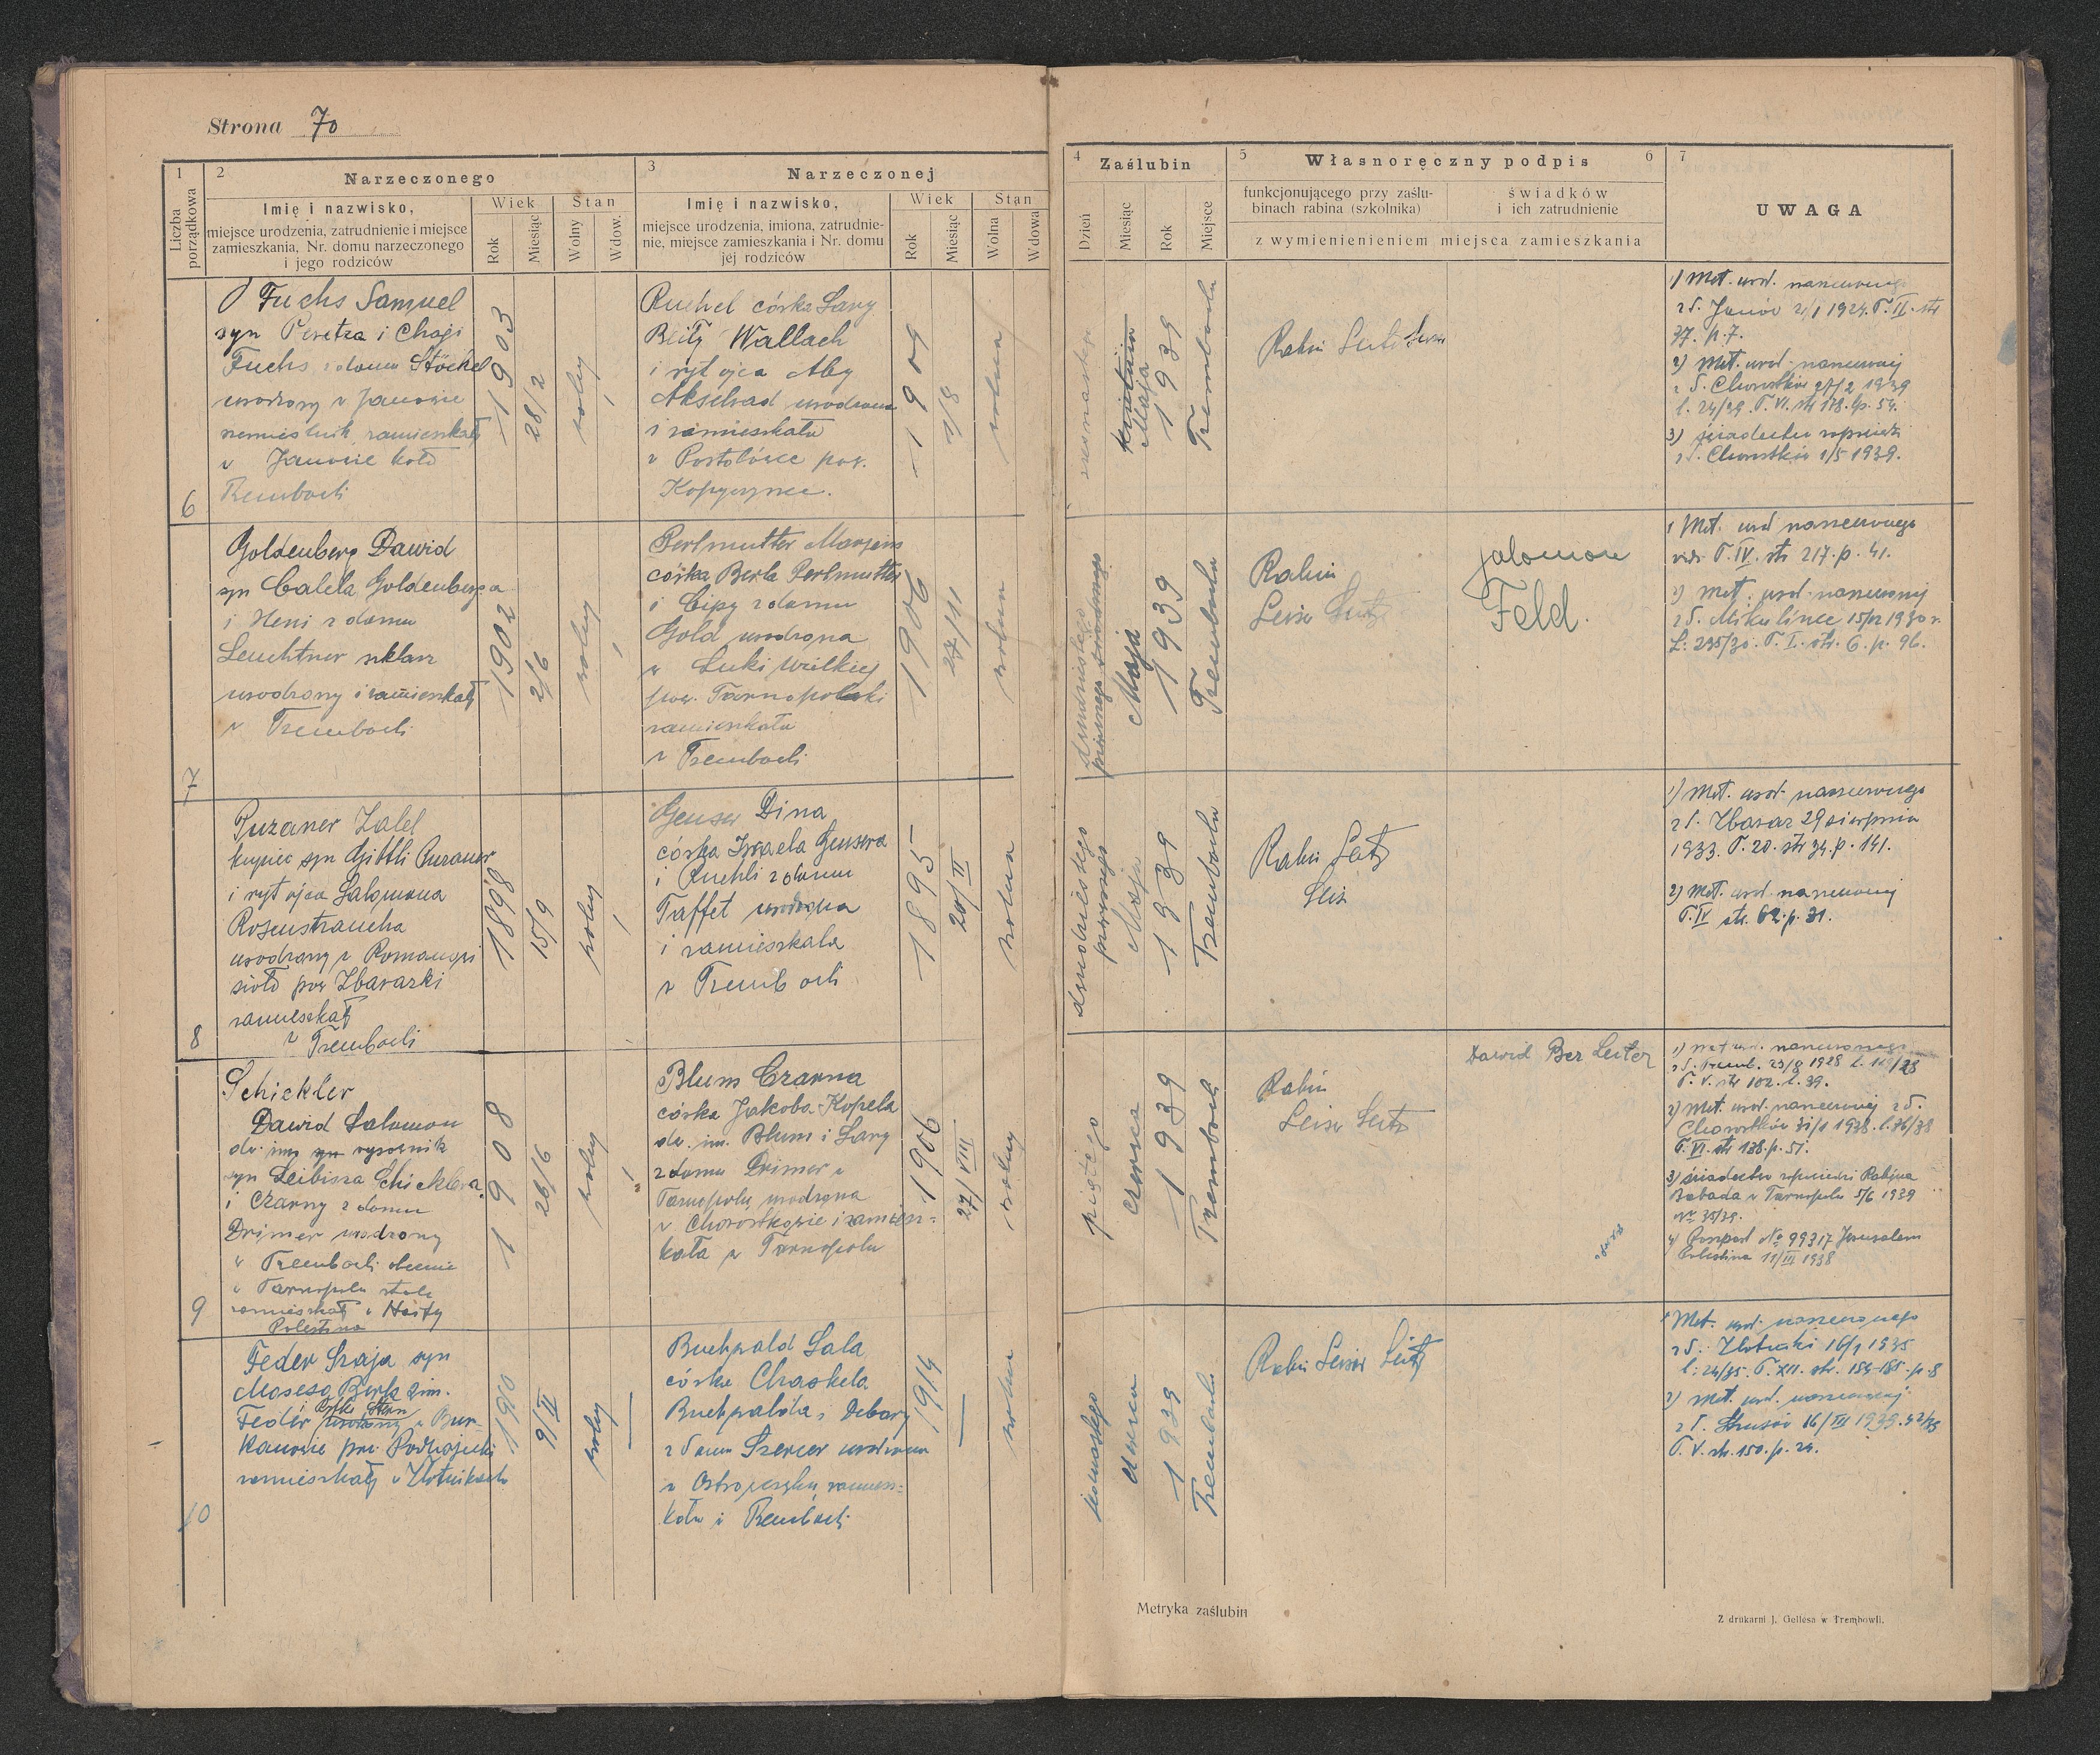 Strona 70
1
Liczba porządkowa
2
Narzeczonego
Imię i nazwisko,
miejsce urodzenia, zatrudnienie i miejsce
zamieszkania, Nr. domu narzeczonego
i jego rodziców
Wiek
Rok
Miesiąc
Stan
Wolny
Wdow.
3
Narzeczonej
Imię i nazwisko,
miejsce urodzenia, imiona, zatrudnie-
nie, miejsce zamieszkania i Nr. domu
jej rodziców
Wiek
Rok
Miesiąc
Stan
Wolna
Wdowa
4
Zaślubin
Dzień
Miesiąc
Rok
Miejsce
5
Własnoręczny podpis
6
funkcjonującego przy zaślu-
binach rabina (szkolnika)
świadków
i ich zatrudnienie
z wymienienieniem miejsca zamieszkania
7
UWAGA
6
Fuchs Samuel
syn Peretza i Chaji
Fuchs z domu Stöckel
urodzony w Janowie
rzemieślnik, zamieszkał
w Janowie koło
Trembowli
1903
28/2
wolny
Ruchel córka Sary
Beili Wallach
i ojca Aby
Akselrad urodzona
i zamieszkała
w Postołówce pow.
Kopyczyńce.
1909
1/8
wolna
Maja
1939
Trembowla
Rabin
1) Met. urod. narzeczonego
z d. Janów 1924. T. II. str
37. p. 7.
2) Met. urod. narzeczonej
z d. Chorostków 27/2 1939
l. 24/39. T. VI. str 178. lp. 54.
3) świadectwo zapowiedzi
z d. Chorostków 1/5 1939.
7
Goldenberg Dawid
syn Calela Goldenberga
i Heni z domu
Leuchtner szklarz
urodzony i zamieszkały
w Trembowli
1902
2/6
wolny
Perlmutter Marjem
córka Berla Perlmutter
i Cipy z domu
Gold urodzona
w Łuki Wielkiej
pow. Tarnopolski
zamieszkała
w Trembowli
1906
27/111
wolna
dwudziestego
pierwszego
Maja
1939
Trembowla
Rabin
Leiser Seitz
Salomon
Feld.
1) Met. urod narzeczonego
T. IV. str 217. p. 41.
2) Met. urod. narzeczonej
z d. Mikulińce 15/12 1930 r.
L: 235/30. T. I. str. 6. p. 96.
8
Puzaner Zalel
kupiec syn Gittli Puzaner
i ojca Salomona
Rosenstraucha
urodzony w Romanowe
sioło pow Zbarazki
zamieszkał
w Trembowli
1898
15/9
wolny
Genser Dina
córka Izraela Gensera
i Ruchli z domu
Taffet urodzona
i zamieszkała
w Trembowli
1895
20/II
wolna
dwudziestego
pierwszego
Maja
1939
Trembowla
Rabin Seitz
1) Met. urod. narzeczonego
z d. Zbaraz 29 sierpnia
1933. T. 20. str 34. p. 141.
2) Met. urod. narzeczonej
T. IV str. 62. p. 31.
9
Schickler
Dawid Salomon
dw. im.
syn Leibisza Schicklera
i Czarny z domu
Drimer urodzony
w Trembowli obecnie
w Tarnopolu stale
zamieszkał w Haify
Palestina
1908
26/6
wolny
Blum Czarna
córka Jakoba-Kopela
dw. im. Blum i Sary
z domu Drimer w
Tarnopolu, urodzona
w Chorostkowie i zamiesz=
kała w Tarnopolu
1906
27/VIII
wolny
piątego
czerwca
1939
Trembowli
Rabin
Leiser Seitz
Dawid Ber Leiter
1) Met. ur. narzeczonego
z d. Tremb. 23/8 1928
T. V. str 102. l. 39.
2) Met. urod. narzeczonej z d.
Chorostków 31/1 1938. l. 36/38
T. VI. str 188. p. 51.
3) świadectwo zapowiedzi Rabina
Babada w Tarnopolu 5/6 1939
Nr 35/39.
4) Paszport No 99317 Jerusalem
Palestina 11/III 1938
10
Feder Szaja syn
Mosesa Berla 2 im.
Feder w Bur=
kanowie pow. Podhajecki
zamieszkały w Złotnikach
1910
9/II
wolny
Buchwald Sala
córka Chaskela
Buchwalda i Debory
z domu Szercer urodzona
w Ostrowczyku, zamiesz=
kała i Trembowli
1914
wolna
czerwca
1939
Trembowla
Rabin Leiser Seitz
1) Met. urod. narzeczonego
z d. Złotniki 16/1 1935
l: 24/35. T. XII. str. 184-185. p. 8
2) Met. urod. narzeczonej
z d. Strusów 16/III 1939.
T. V. str. 150. p. 24.
Metryka zaślubin
Z drukarni J. Gellesa w Trembowli.